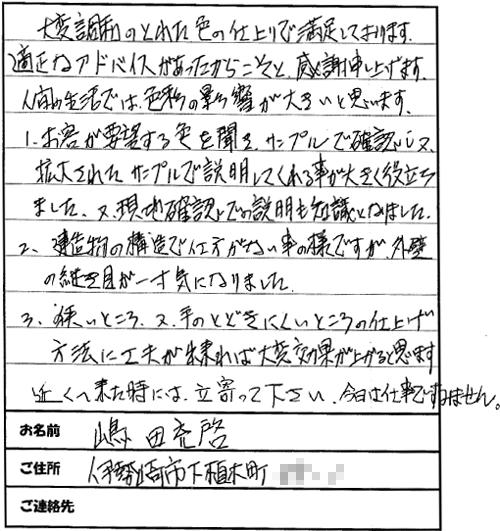 大変調和のとれた色の仕上りで満足しております。
適正なアドバイスがあったからこそと、感謝申し上げます。
人間の生活では、色彩の影響が大きいと思います。
1. お客が要望する色を聞き、サンプルで確認し又
拡大されたサンプルで説明してくれる事が大きく役立ち
ました。又、現地確認での説明も知識となりました。
2、建造物の構造で仕方がない事の様ですが、外壁
の継ぎ目が一寸気になりました。
3、狭いところ、又、手のとどきにくいところの仕上げ
方法に工夫が出来れば大変効果が上がると思います
近くへ来た時には、立寄って下さい、今日は仕事ですみません。
お名前 嶋田 啓
ご住所 伊勢崎市下植木町
ご連絡先